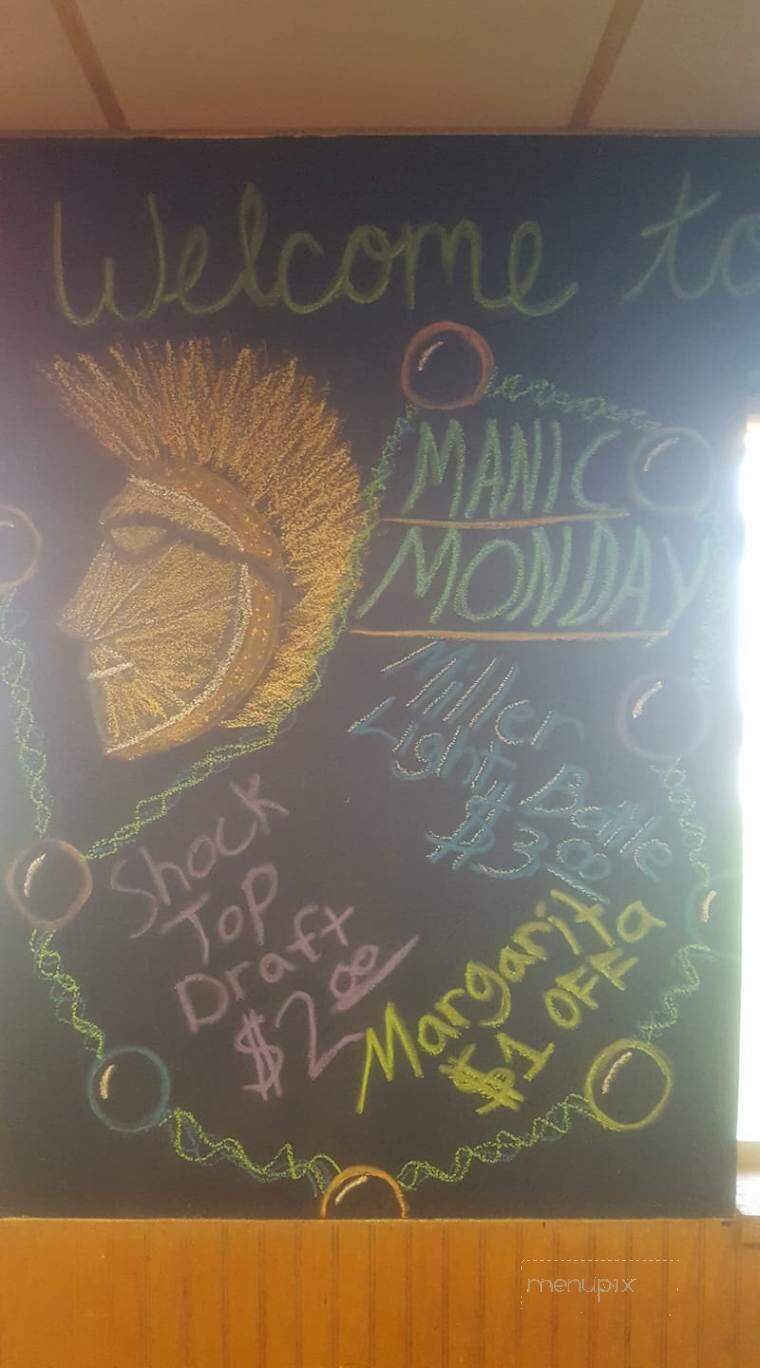 Welcome to
MANIC
MONDAY
Miller
Light Bottle
$3.00
Shock
Top
Draft
$2.00
Margarita
$1 OFF
menupix